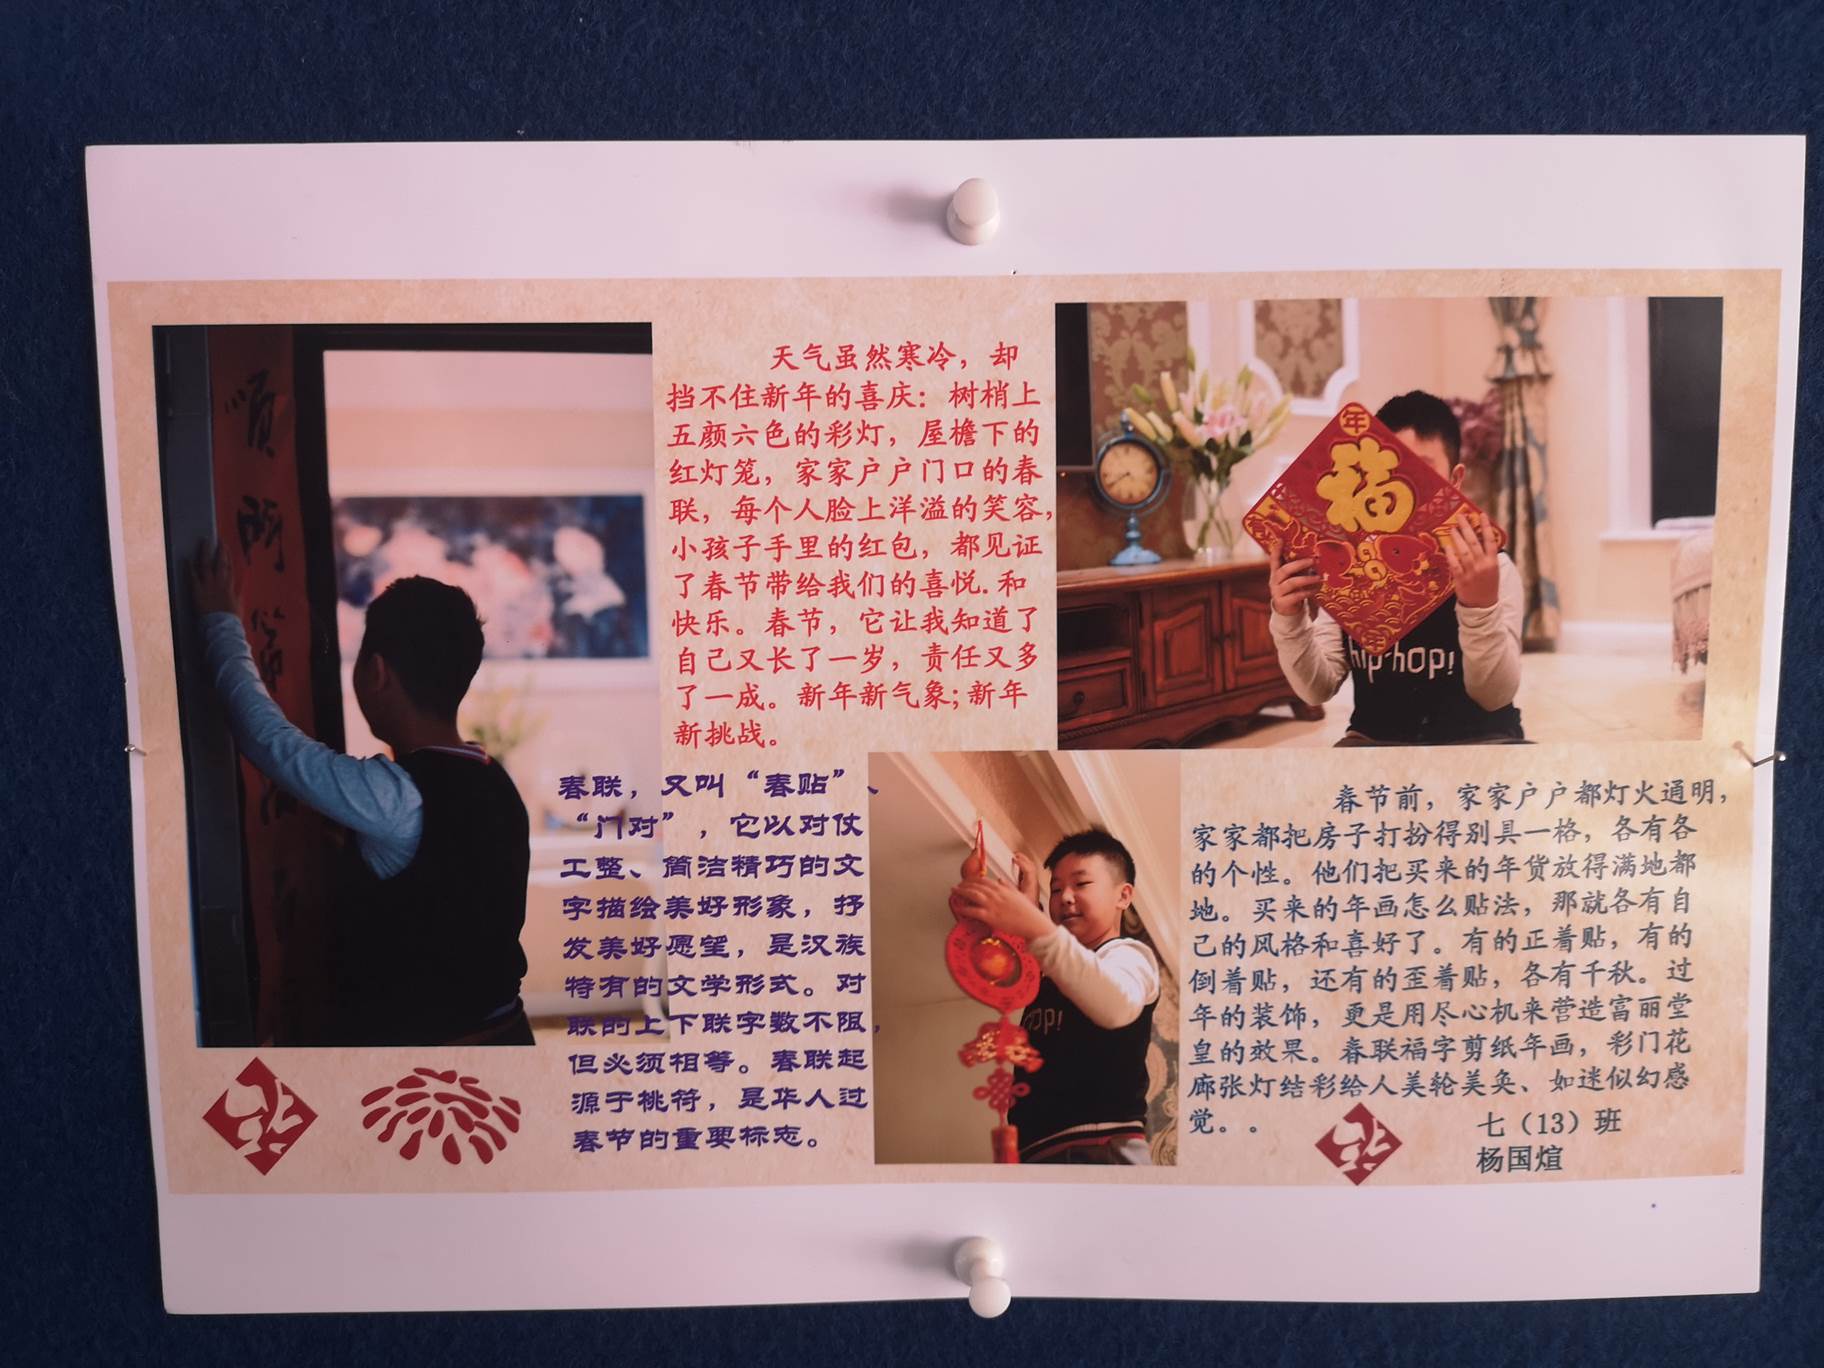 天气虽然寒冷，却
挡不住新年的喜庆：树梢上
五颜六色的彩灯，屋檐下的
红灯笼，家家户户门口的春
联，每个人脸上洋溢的笑容，
小孩子手里的红包，都见证
了春节带给我们的喜悦.和
快乐。春节，它让我知道了
自己又长了一岁，责任又多
了一成。新年新气象;新年
新挑战。
年
福
hip-hop!
春联，又叫“春贴”、
“门对”，它以对仗
工整、简洁精巧的文
字描绘美好形象，抒
发美好愿望，是汉族
特有的文学形式。对
联的上下联字数不限，
但必须相等。春联起
源于桃符，是华人过
春节的重要标志。
春节前，家家户户都灯火通明，
家家都把房子打扮得别具一格，各有各
的个性。他们把买来的年货放得满地都
地。买来的年画怎么贴法，那就各有自
己的风格和喜好了。有的正着贴，有的
倒着贴，还有的歪着贴，各有千秋。过
年的装饰，更是用尽心机来营造富丽堂
皇的效果。春联福字剪纸年画，彩门花
廊张灯结彩给人美轮美奂、如迷似幻感
觉。。
七（13）班
杨国煊